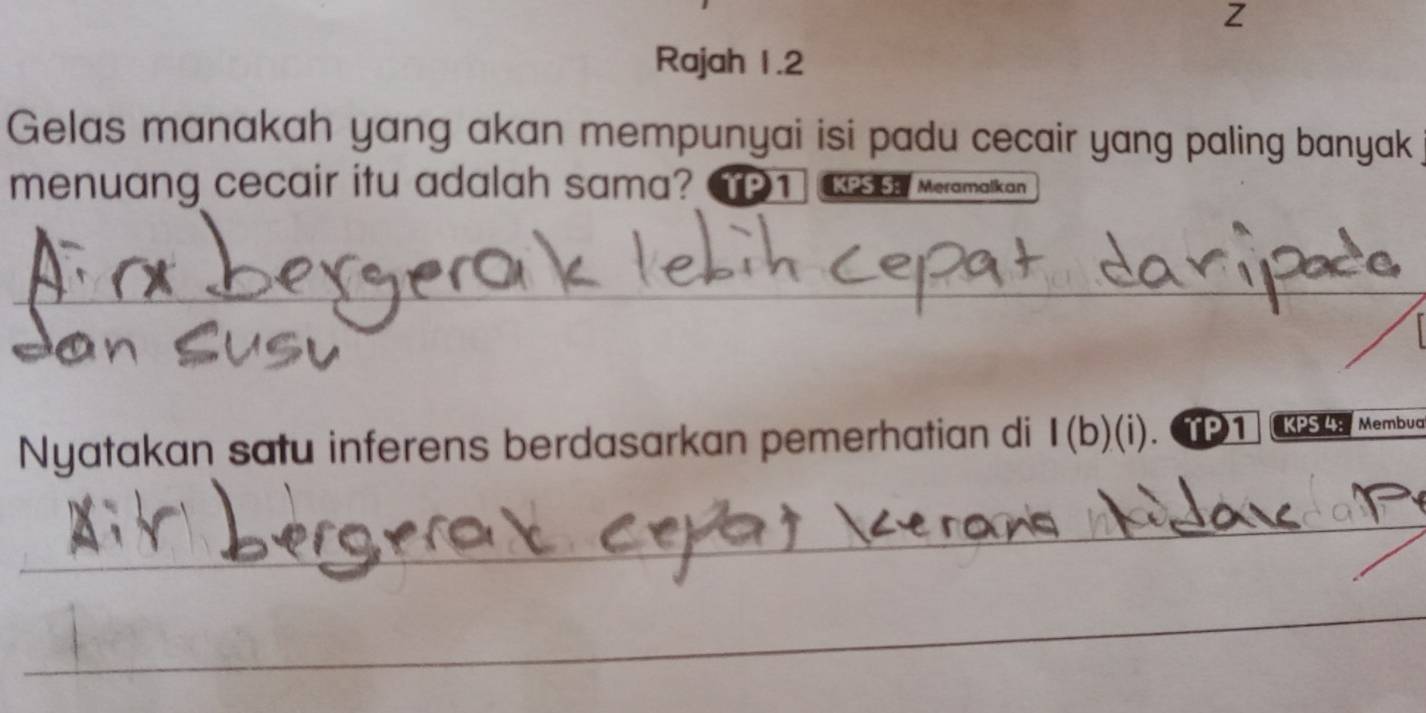 Z
Rajah 1.2
Gelas manakah yang akan mempunyai isi padu cecair yang paling banyak
menuang cecair itu adalah sama? TP 1 KPS 5: Meramalkan
Air bergerak lebih cepat daripada
dan susu
Nyatakan satu inferens berdasarkan pemerhatian di 1(b)(i). TP 1 KPS 4: Membua
Air bergerak cepat kerana tidak